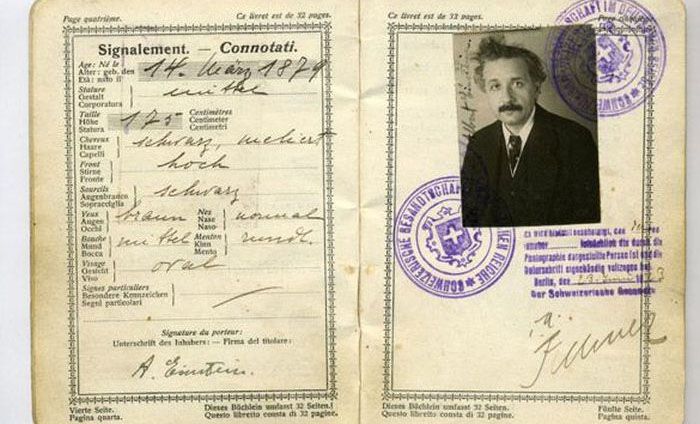 Page quatrième.
Ce livret est de 32 pages.
Signalement. — Connotati.
Age: Né le
Alter: geb. den
Età: nato il
14. März 1879
Stature
Gestalt
Corporatura
mittel
Taille
Höhe
Statura
175
Centimètres
Centimeter
Centimetri
Cheveux
Haare
Capelli
schwarz, meliert
Front
Stirne
Fronte
hoch
Sourcils
Augenbrauen
Sopracciglia
schwarz
Yeux
Augen
Occhi
braun
Nez
Nase
Naso
normal
Bouche
Mund
Bocca
mittel
Menton
Kinn
Mento
rundl.
Visage
Gesicht
Viso
oval
Signes particuliers
Besondere Kennzeichen
Segni particolari
Signature du porteur:
Unterschrift des Inhabers: — Firma del titolare:
A. Einstein.
Vierte Seite.
Pagina quarta.
Dieses Büchlein umfasst 32 Seiten.
Questo libretto consta di 32 pagine.
Ce livret est de 32 pages.
Page cinquième.
SCHWEIZERISCHE GESANDTSCHAFT IM DEUTSCHEN REICHE
SCHWEIZERISCHE GESANDTSCHAFT IM DEUTSCHEN REICHE
Es wird hiermit bescheinigt, dass
Inhaber die durch die
Photographie dargestellte Person ist und die
Unterschrift eigenhändig vollzogen hat.
Berlin, den
Der Schweizerische Gesandte
Dieses Büchlein umfasst 32 Seiten.
Questo libretto consta di 32 pagine.
Fünfte Seite.
Pagina quinta.